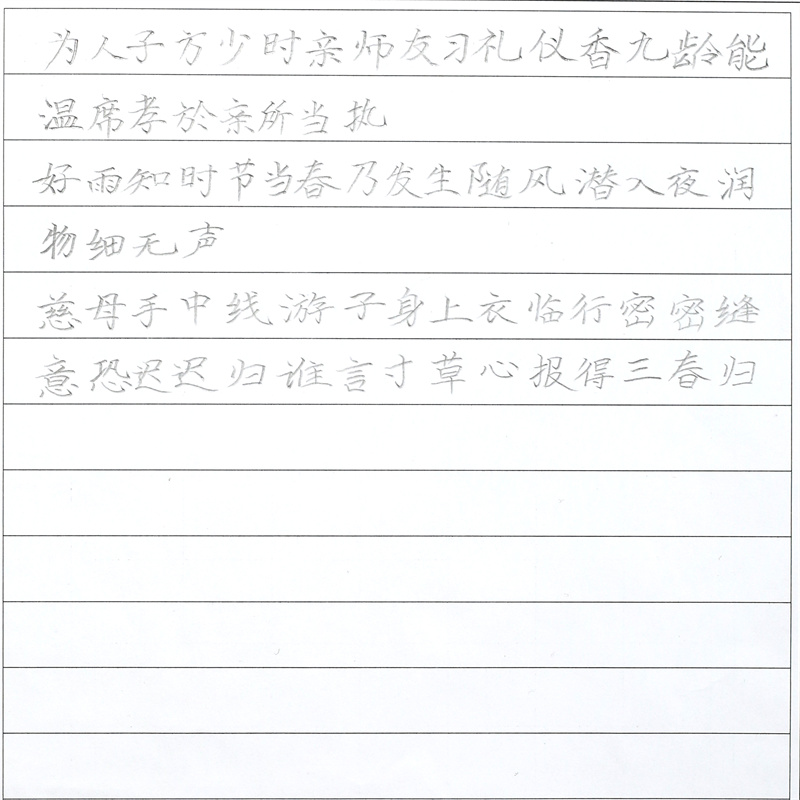 为人子方少时亲师友习礼仪香九龄能
温席孝於亲所当执
好雨知时节当春乃发生随风潜入夜润
物细无声
慈母手中线游子身上衣临行密密缝
意恐迟迟归谁言寸草心报得三春归